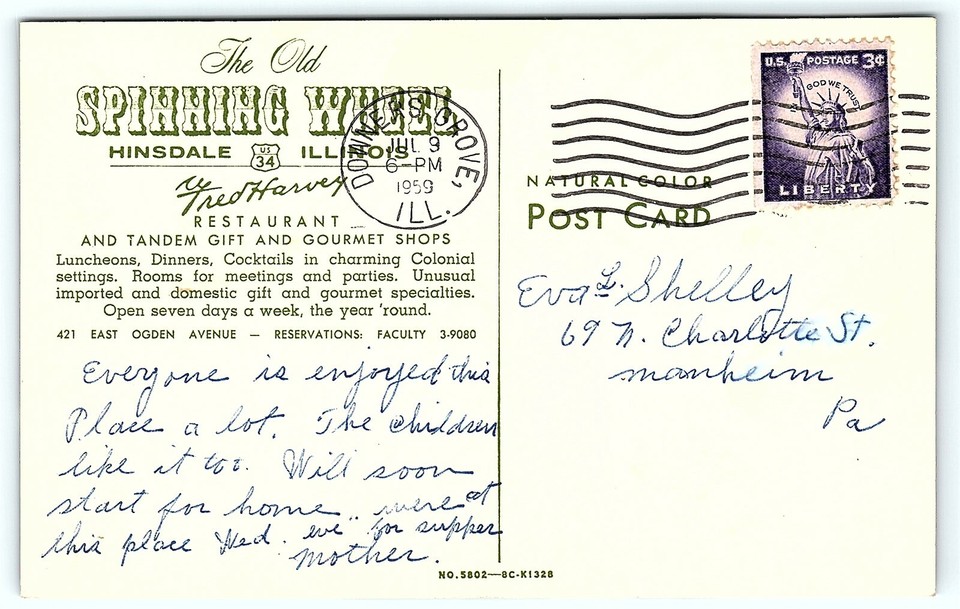 The Old
SPINNING WHEEL
HINSDALE US 34 ILLINOIS
Fred Harvey
RESTAURANT
AND TANDEM GIFT AND GOURMET SHOPS
Luncheons, Dinners, Cocktails in charming Colonial
settings. Rooms for meetings and parties. Unusual
imported and domestic gift and gourmet specialties.
Open seven days a week, the year 'round.
421 EAST OGDEN AVENUE — RESERVATIONS: FACULTY 3-9080
Everyone is enjoyed this
Place a lot. The children
like it too. Will soon
start for home.. were at
this place Wed. eve for supper
Mother.
DOWNERS GROVE,
JUL 9
6-PM
1959
ILL.
U.S. POSTAGE 3¢
IN GOD WE TRUST
LIBERTY
NATURAL COLOR
POST CARD
Eva L. Shelley
69 N. Charlotte St.
Manheim
Pa
NO.5802—8C-K1328